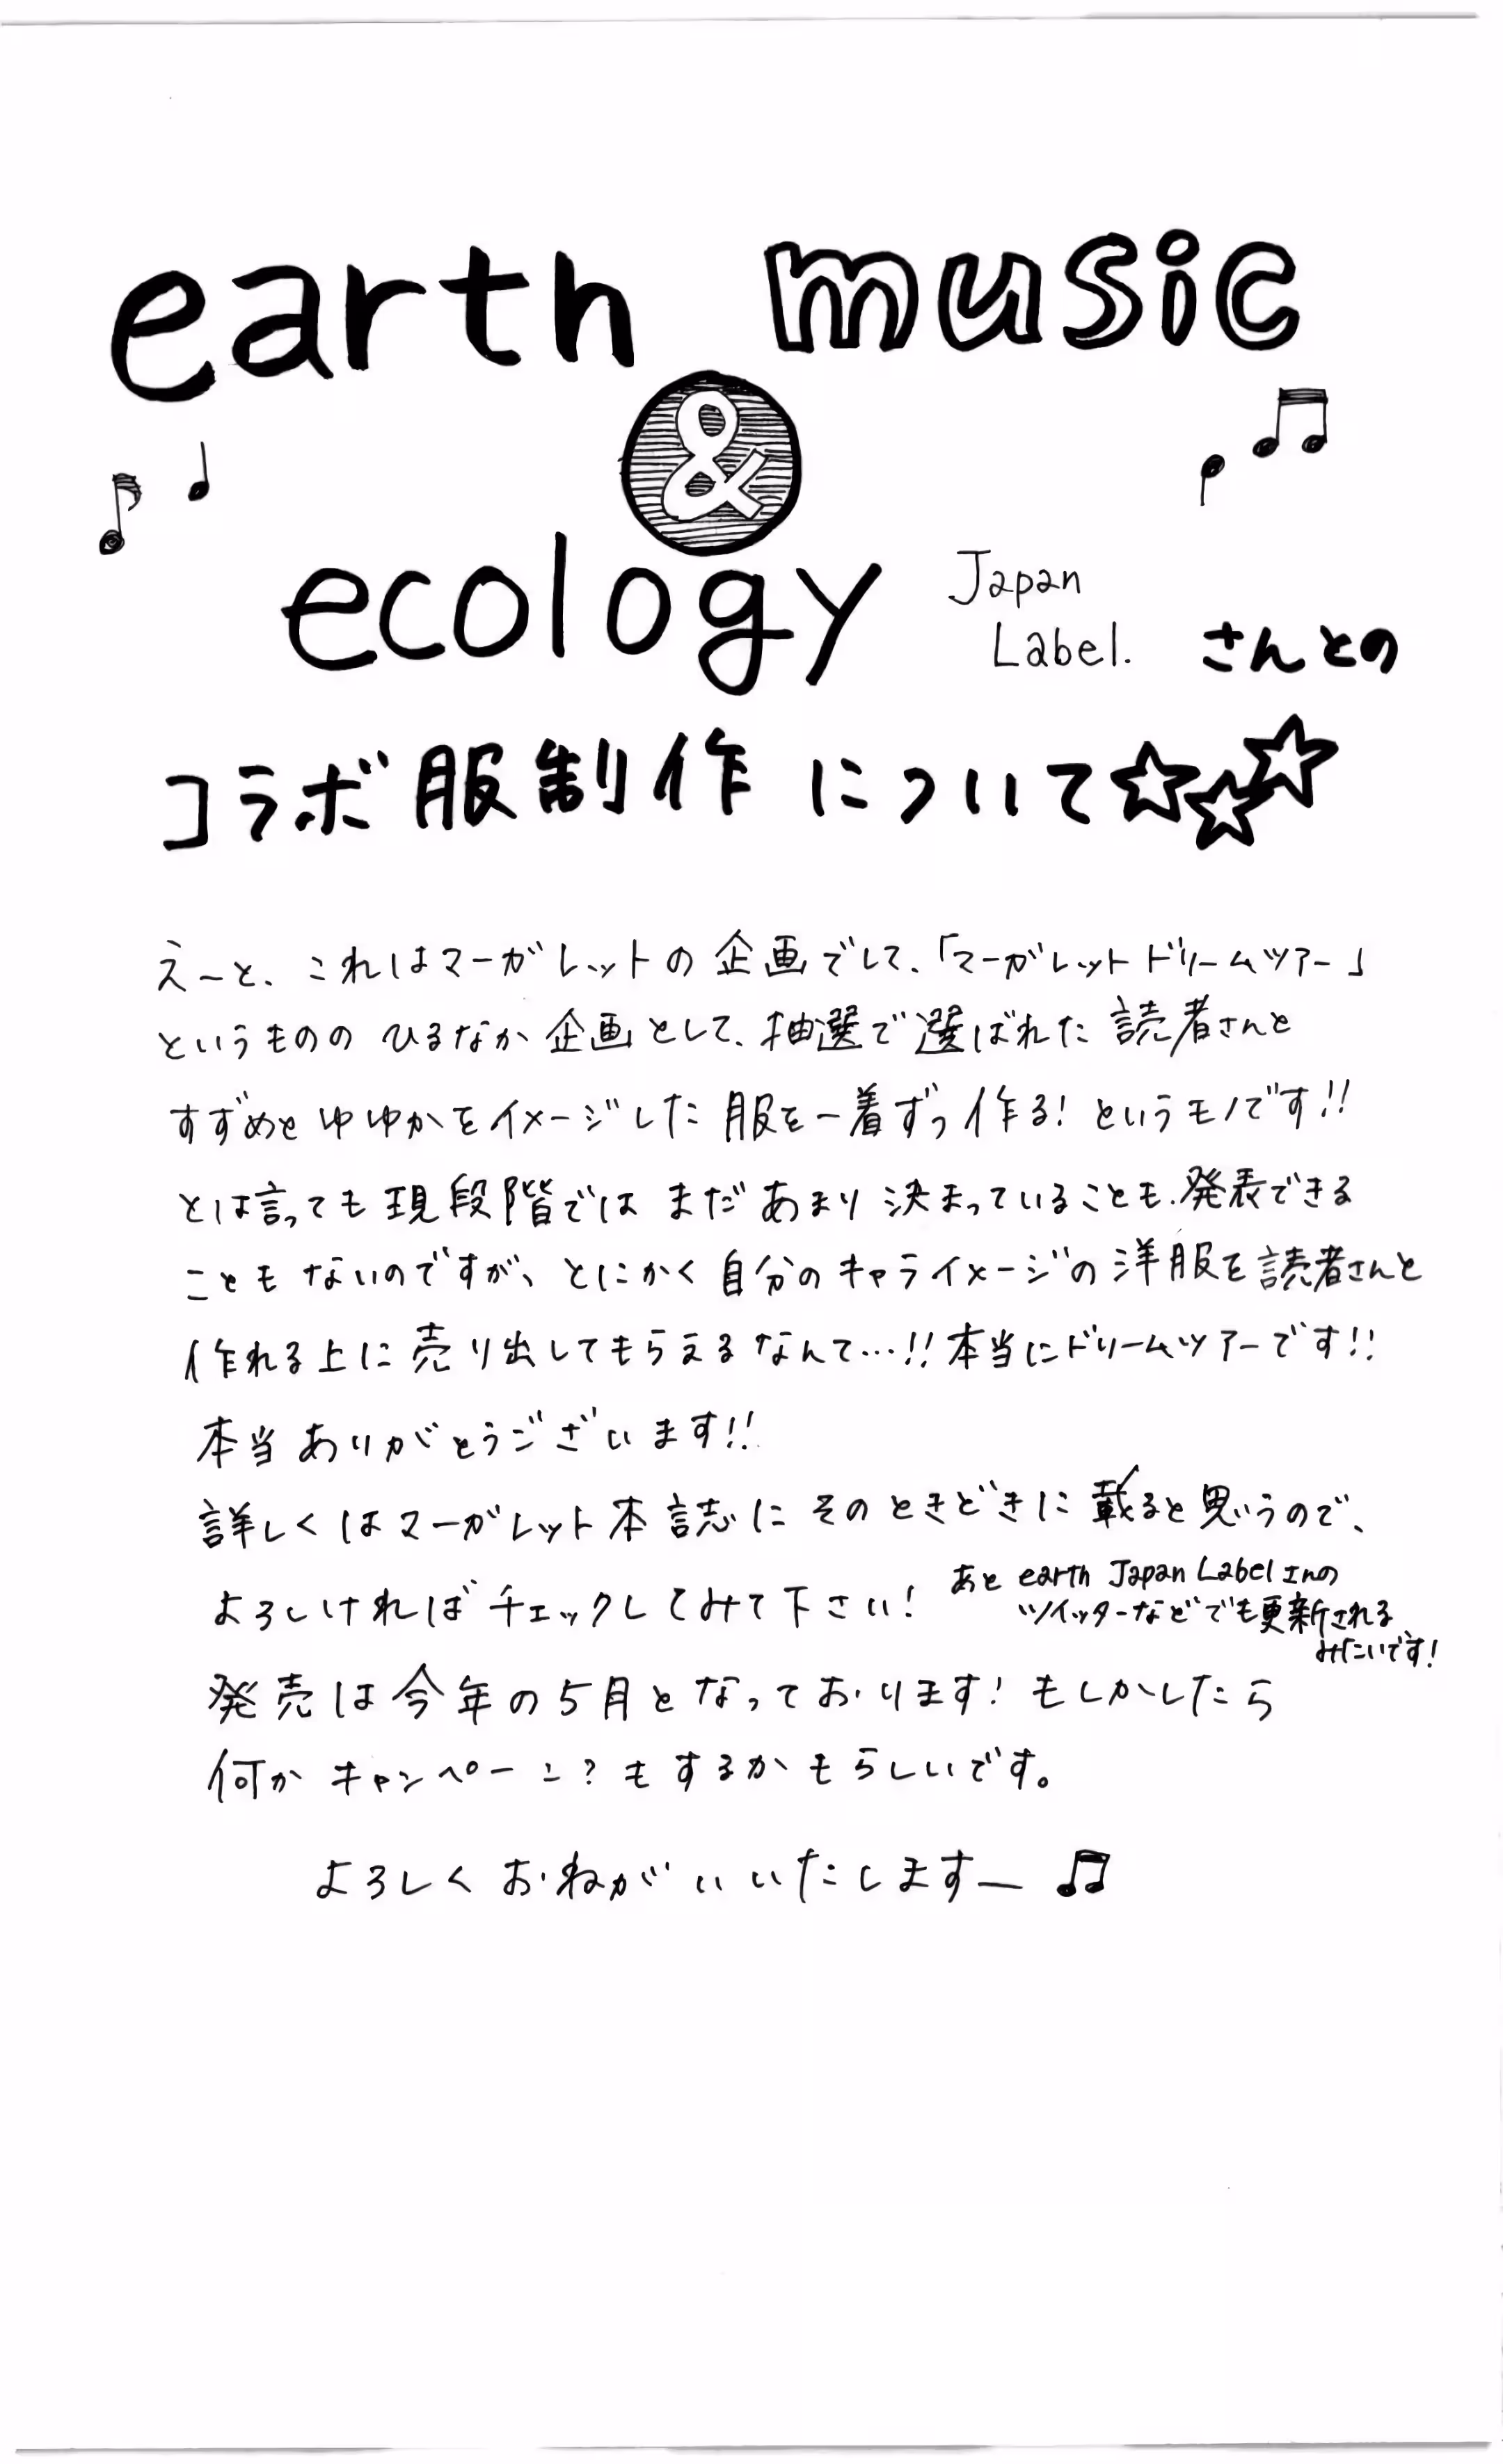 earth music
&
ecology Japan
Label. さんとの
コラボ服制作について☆☆☆
えーと、これはマーガレットの企画でして、「マーガレットドリームツアー」
というもののひるなか企画として、抽選で選ばれた読者さんと
すずめとゆゆかをイメージした服を一着ずつ作る!というモノです!!
とは言っても現段階ではまだあまり決まっていることも、発表できる
こともないのですが、とにかく自分のキャライメージの洋服を読者さんと
作れる上に売り出してもらえるなんて…!!本当にドリームツアーです!!
本当ありがとうございます!!
詳しくはマーガレット本誌にそのときどきに載ると思うので、
よろしければチェックしてみて下さい!
あと earth Japan Label さんの
ツイッターなどでも更新される
みたいです!
発売は今年の5月となっております!もしかしたら
何かキャンペーン?もするかもらしいです。
よろしくおねがいいたしますー♫